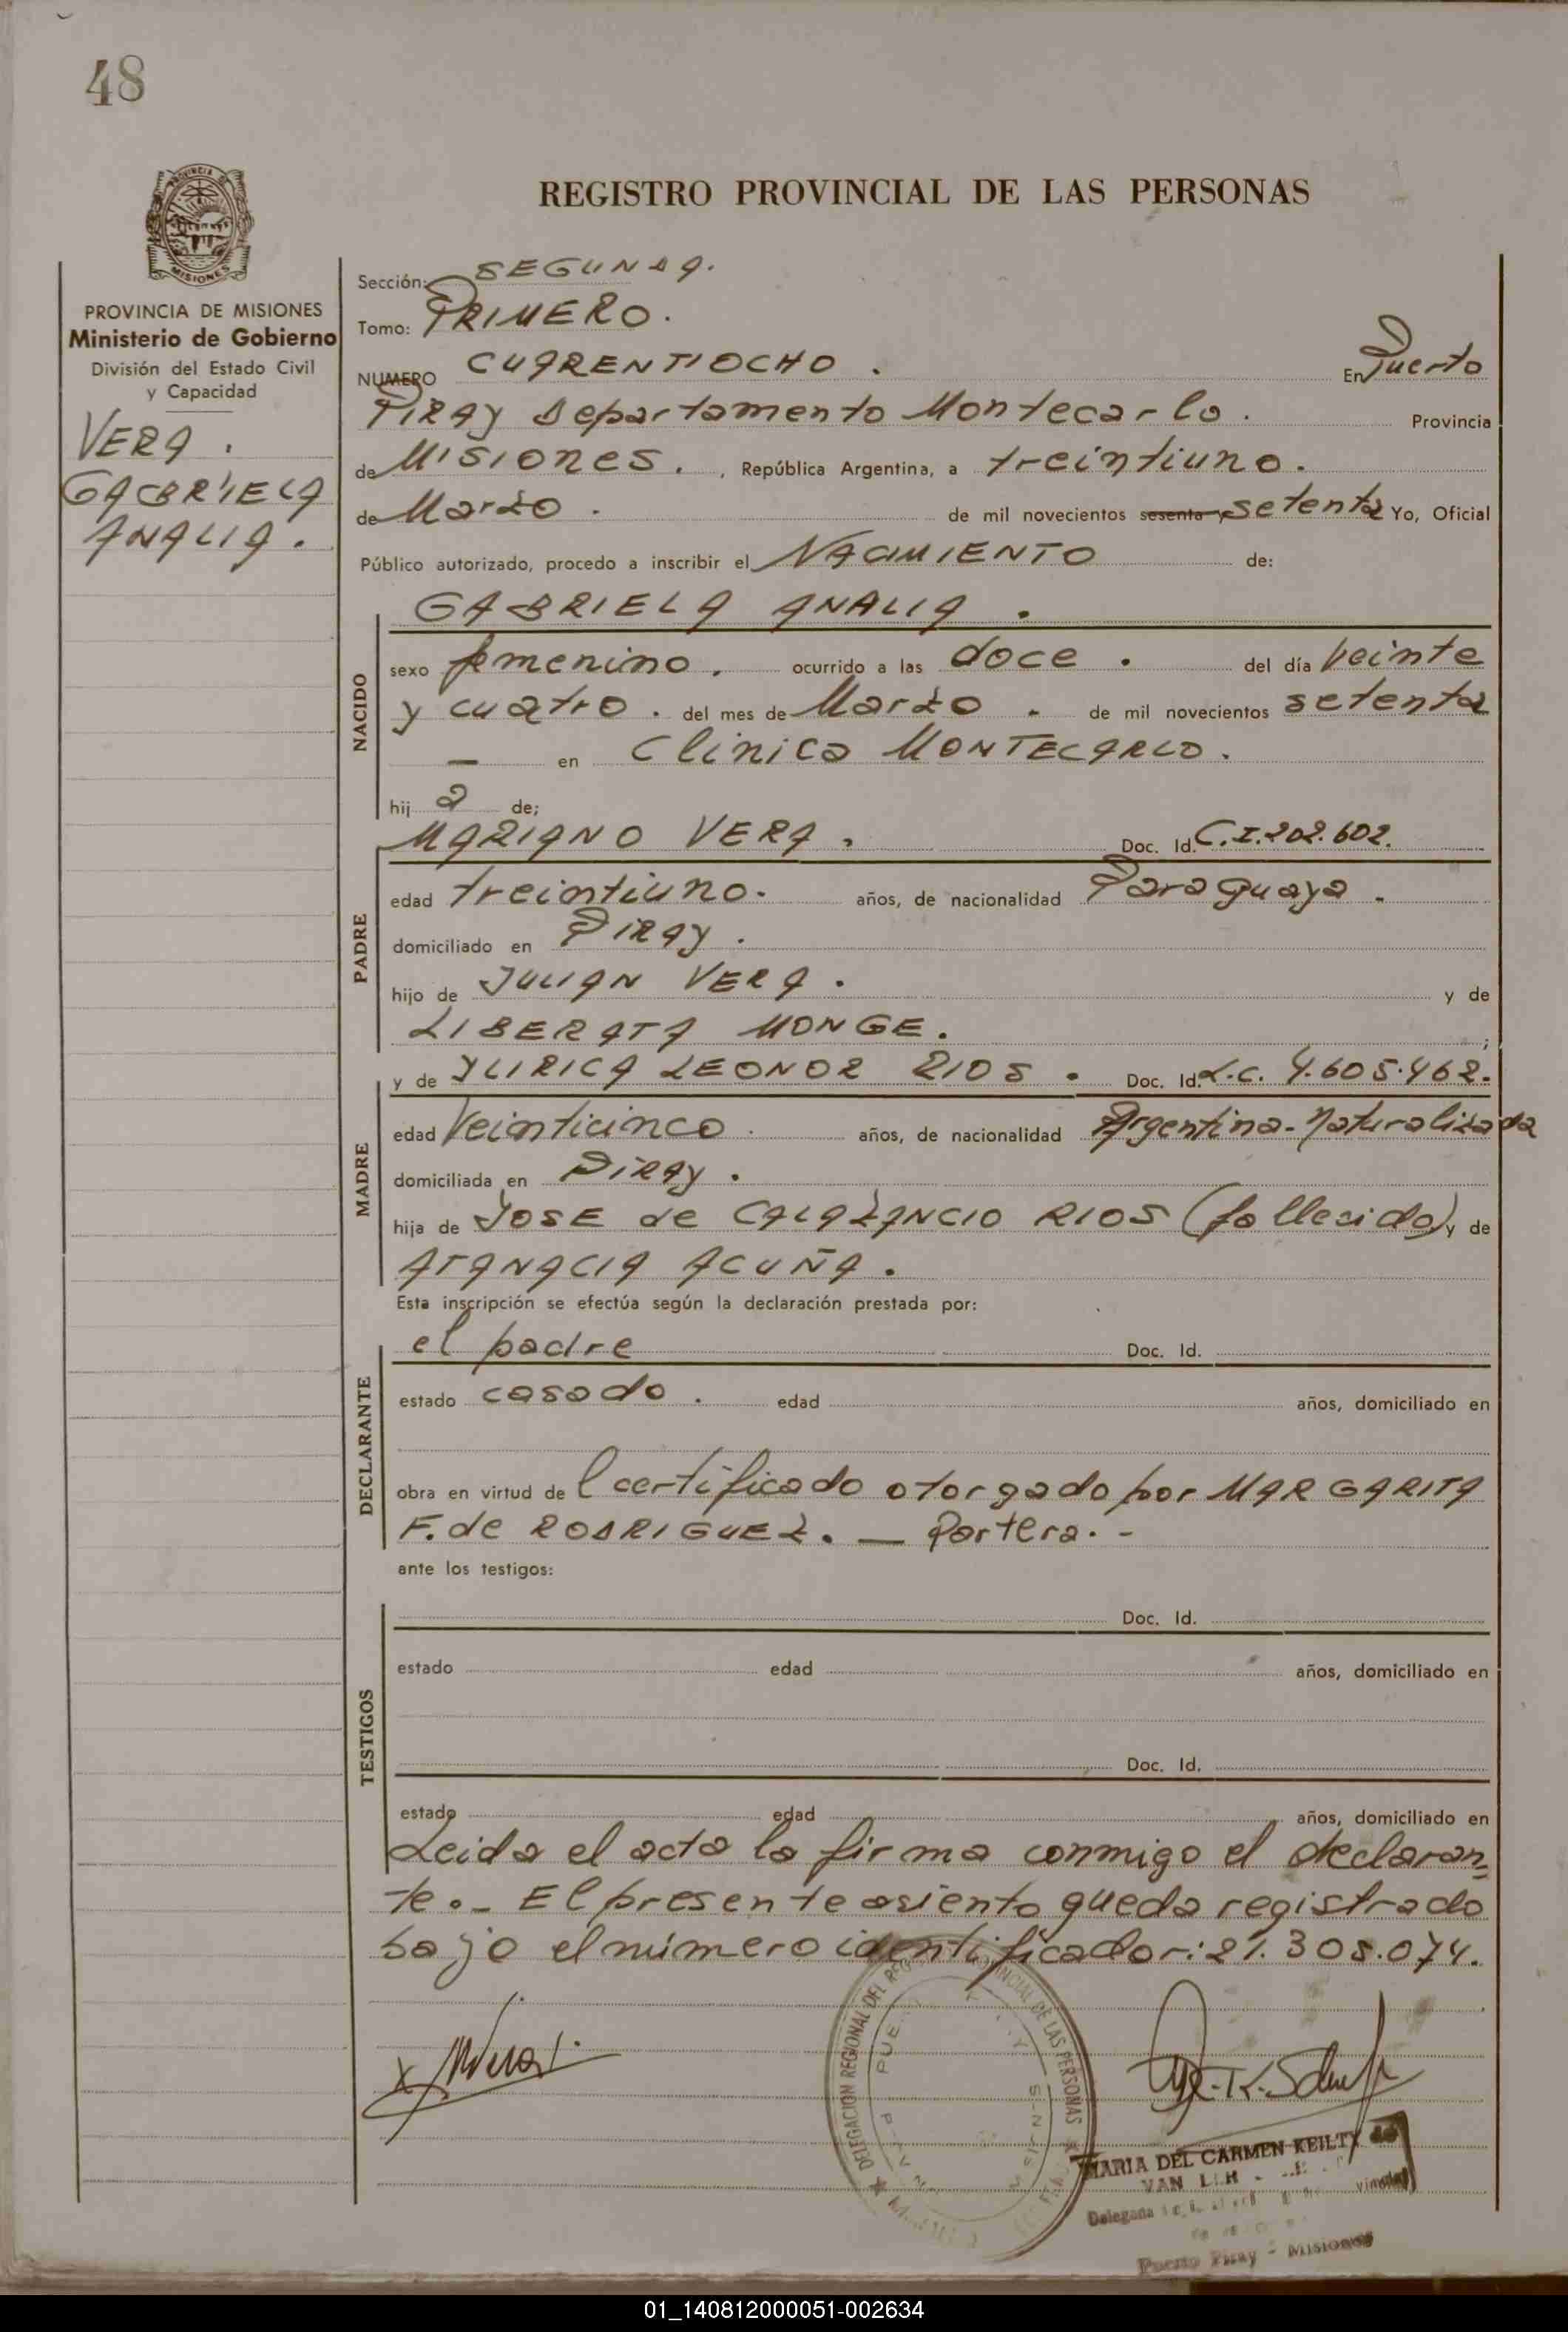 48
REGISTRO PROVINCIAL DE LAS PERSONAS
MISIONES
PROVINCIA DE MISIONES
Ministerio de Gobierno
División del Estado Civil
y Capacidad
VERA.
GABRIELA
ANALIA.
Sección: SEGUNDA.
Tomo: PRIMERO.
NUMERO CUARENTIOCHO. En Puerto
PIRAY Departamento Montecarlo. Provincia
de Misiones. , República Argentina, a treintiuno.
de Marzo. de mil novecientos sesenta y setenta Yo, Oficial
Público autorizado, procedo a inscribir el NACIMIENTO de:
GABRIELA ANALIA.
NACIDO
sexo femenino. ocurrido a las doce. del día veinte
y cuatro. del mes de Marzo. de mil novecientos setenta
— en Clinica MONTECARLO.
hij a de;
MARIANO VERA. Doc. Id. C.I. 202.602.
PADRE
edad treintiuno. años, de nacionalidad Paraguaya.
domiciliado en PIRAY.
hijo de JULIAN VERA. y de
LIBERATA MONGE. ;
y de YLIRICA LEONOR RIOS. Doc. Id. L.C. 4.605.462.
MADRE
edad Veinticinco. años, de nacionalidad Argentina-Naturalizada
domiciliada en PIRAY.
hija de JOSE de CALAZANCIO RIOS (fallecido) y de
ATANACIA ACUÑA.
Esta inscripción se efectúa según la declaración prestada por:
DECLARANTE
el padre Doc. Id.
estado casado. edad años, domiciliado en
obra en virtud de l certificado otorgado por MARGARITA
F. de RODRIGUEZ. — Partera. -
ante los testigos:
TESTIGOS
Doc. Id.
estado edad años, domiciliado en
Doc. Id.
estado edad años, domiciliado en
Leida el acta la firma conmigo el declaran-
te.- El presente asiento queda registrado
bajo el número identificador: 21.305.074.
DELEGACION REGIONAL DEL PROVINCIAL DE LAS PERSONAS
MARIA DEL CARMEN KEILTY
VAN
Delegada
Puerto Piray - Misiones
01_140812000051-002634